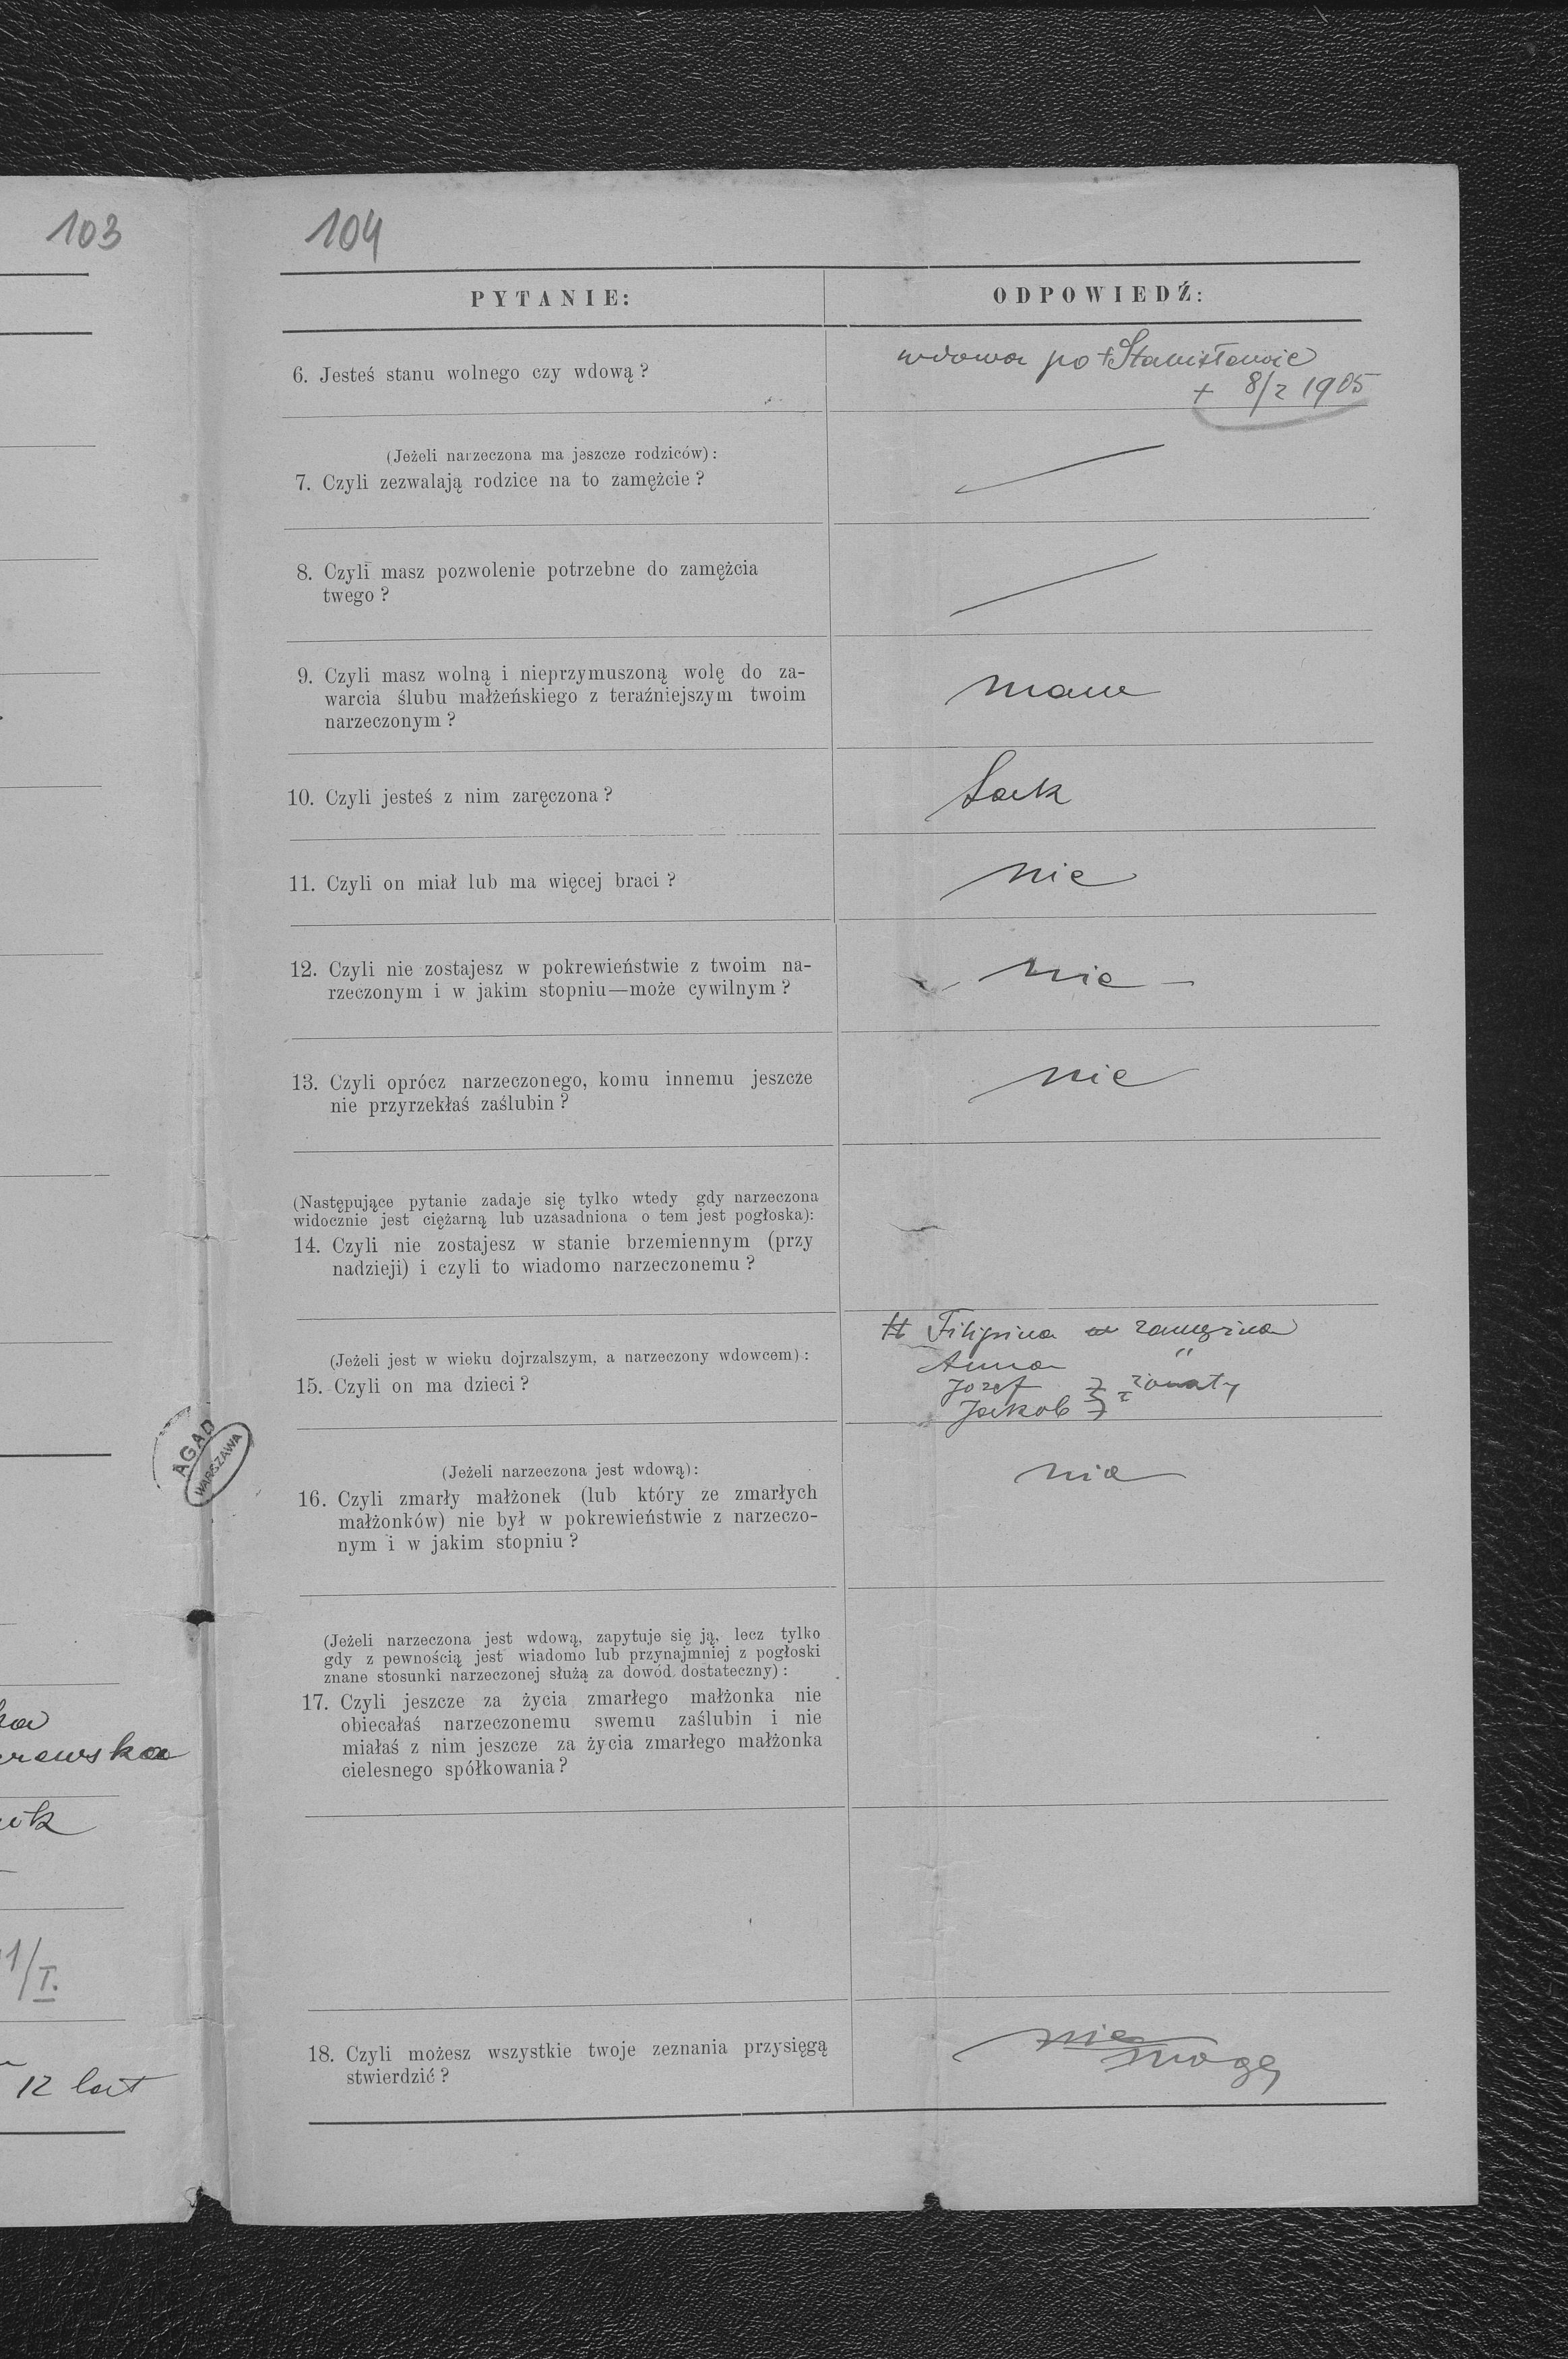 103
104
PYTANIE:
ODPOWIEDŹ:
6. Jesteś stanu wolnego czy wdową?
wdowa po +Stanisławie
+ 8/2 1905
(Jeżeli narzeczona ma jeszcze rodziców):
7. Czyli zezwalają rodzice na to zamężcie?
8. Czyli masz pozwolenie potrzebne do zamężcia
twego?
9. Czyli masz wolną i nieprzymuszoną wolę do za-
warcia ślubu małżeńskiego z teraźniejszym twoim
narzeczonym?
mam
10. Czyli jesteś z nim zaręczona?
tak
11. Czyli on miał lub ma więcej braci?
nie
12. Czyli nie zostajesz w pokrewieństwie z twoim na-
rzeczonym i w jakim stopniu—może cywilnym?
nie —
13. Czyli oprócz narzeczonego, komu innemu jeszcze
nie przyrzekłaś zaślubin?
nie
(Następujące pytanie zadaje się tylko wtedy gdy narzeczona
widocznie jest ciężarną lub uzasadniona o tem jest pogłoska):
14. Czyli nie zostajesz w stanie brzemiennym (przy
nadzieji) i czyli to wiadomo narzeczonemu?
(Jeżeli jest w wieku dojrzalszym, a narzeczony wdowcem):
15. Czyli on ma dzieci?
Filipina zamężna
Anna "
Jozef żonaty
Jakob
(Jeżeli narzeczona jest wdową):
16. Czyli zmarły małżonek (lub który ze zmarłych
małżonków) nie był w pokrewieństwie z narzeczo-
nym i w jakim stopniu?
nie
(Jeżeli narzeczona jest wdową, zapytuje się ją, lecz tylko
gdy z pewnością jest wiadomo lub przynajmniej z pogłoski
znane stosunki narzeczonej służą za dowód dostateczny):
17. Czyli jeszcze za życia zmarłego małżonka nie
obiecałaś narzeczonemu swemu zaślubin i nie
miałaś z nim jeszcze za życia zmarłego małżonka
cielesnego spółkowania?
18. Czyli możesz wszystkie twoje zeznania przysięgą
stwierdzić?
nie
mogę
AGAD
WARSZAWA
1/I.
12 lat